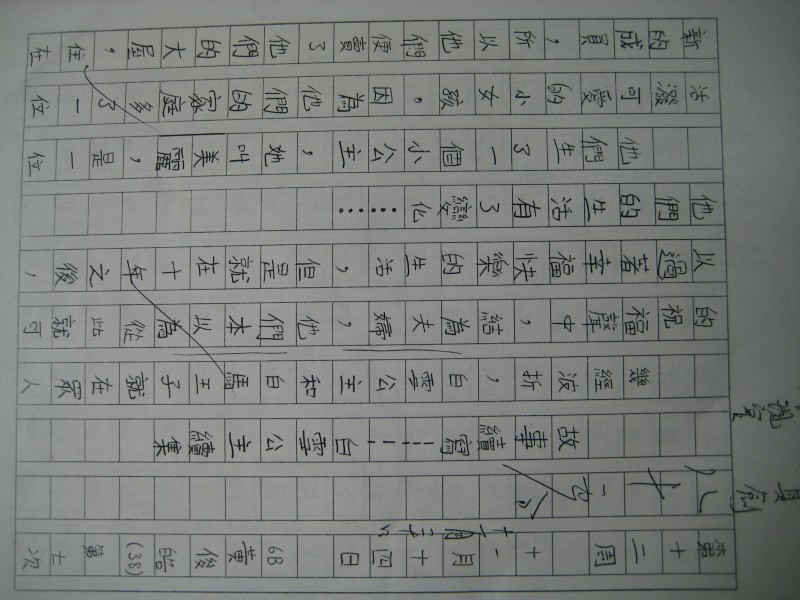 第十二周 十一月十四日 6B 黃俊皓 (38) 第七次
故事續寫-----白雪公主續集
幾經波折，白雪公主和白馬王子就在眾人
的祝福聲中，結為夫婦，他們本以為從此就可
以過著幸福快樂的生活，但是就在十年之後，
他們的生活有了變化……
他們生了一個小公主，她叫美麗，是一位
活潑可愛的小女孩。因為他們的家庭多了一位
新的成員，所以他們便賣了他們的大屋，住在
具創